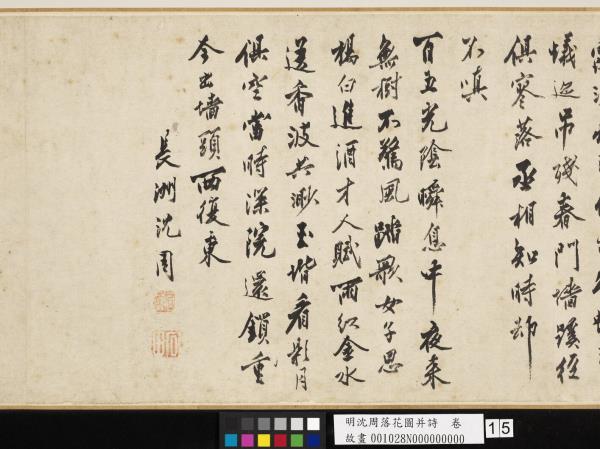 蟻迹吊殘春門墻蹊徑
俱寥落丞相知時却
不嗔
百五光陰瞬息中夜來
無樹不驚風踏歌女子思
楊白進酒才人賦雨紅金水
送香波共渺玉堦看影月
俱空當時深院還鎖重
今出墻頭西復東
長洲沈周
明沈周落花圖并詩　卷
故畫 001028N000000000
15